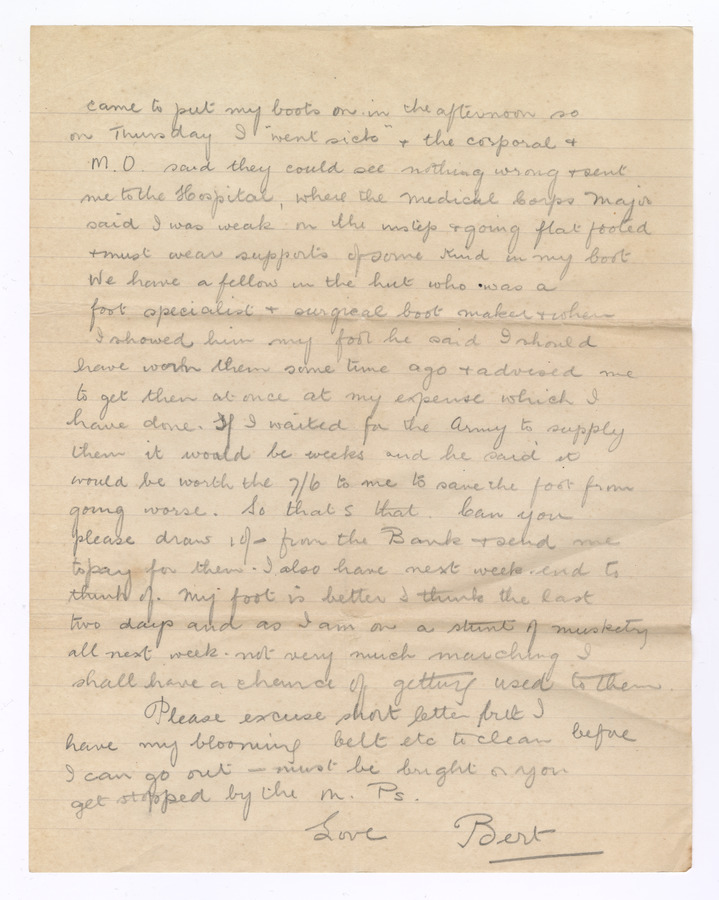 came to put my boots on in the afternoon so
on Thursday I "went sick" + the corporal +
M.O. said they could see nothing wrong + sent
me to the Hospital, where the Medical Corps Major
said I was weak on the instep + going flat footed
+ must wear supports of some kind in my boot
We have a fellow in the hut who was a
foot specialist + surgical boot maker + when
I showed him my foot he said I should
have worn them some time ago + advised me
to get them at once at my expense which I
have done. If I waited for the Army to supply
them it would be weeks and he said it
would be worth the 7/6 to me to save the foot from
going worse. So thats that. Can you
please draw 10/- from the Bank + send me
to pay for them. I also have next week-end to
think of. My foot is better I think the last
two days and as I am on a stunt of musketry
all next week - not very much marching I
shall have a chance of getting used to them.
Please excuse short letter but I
have my blooming belt etc to clean before
I can go out - must be bright or you
get stopped by the M. Ps.
Love Bert